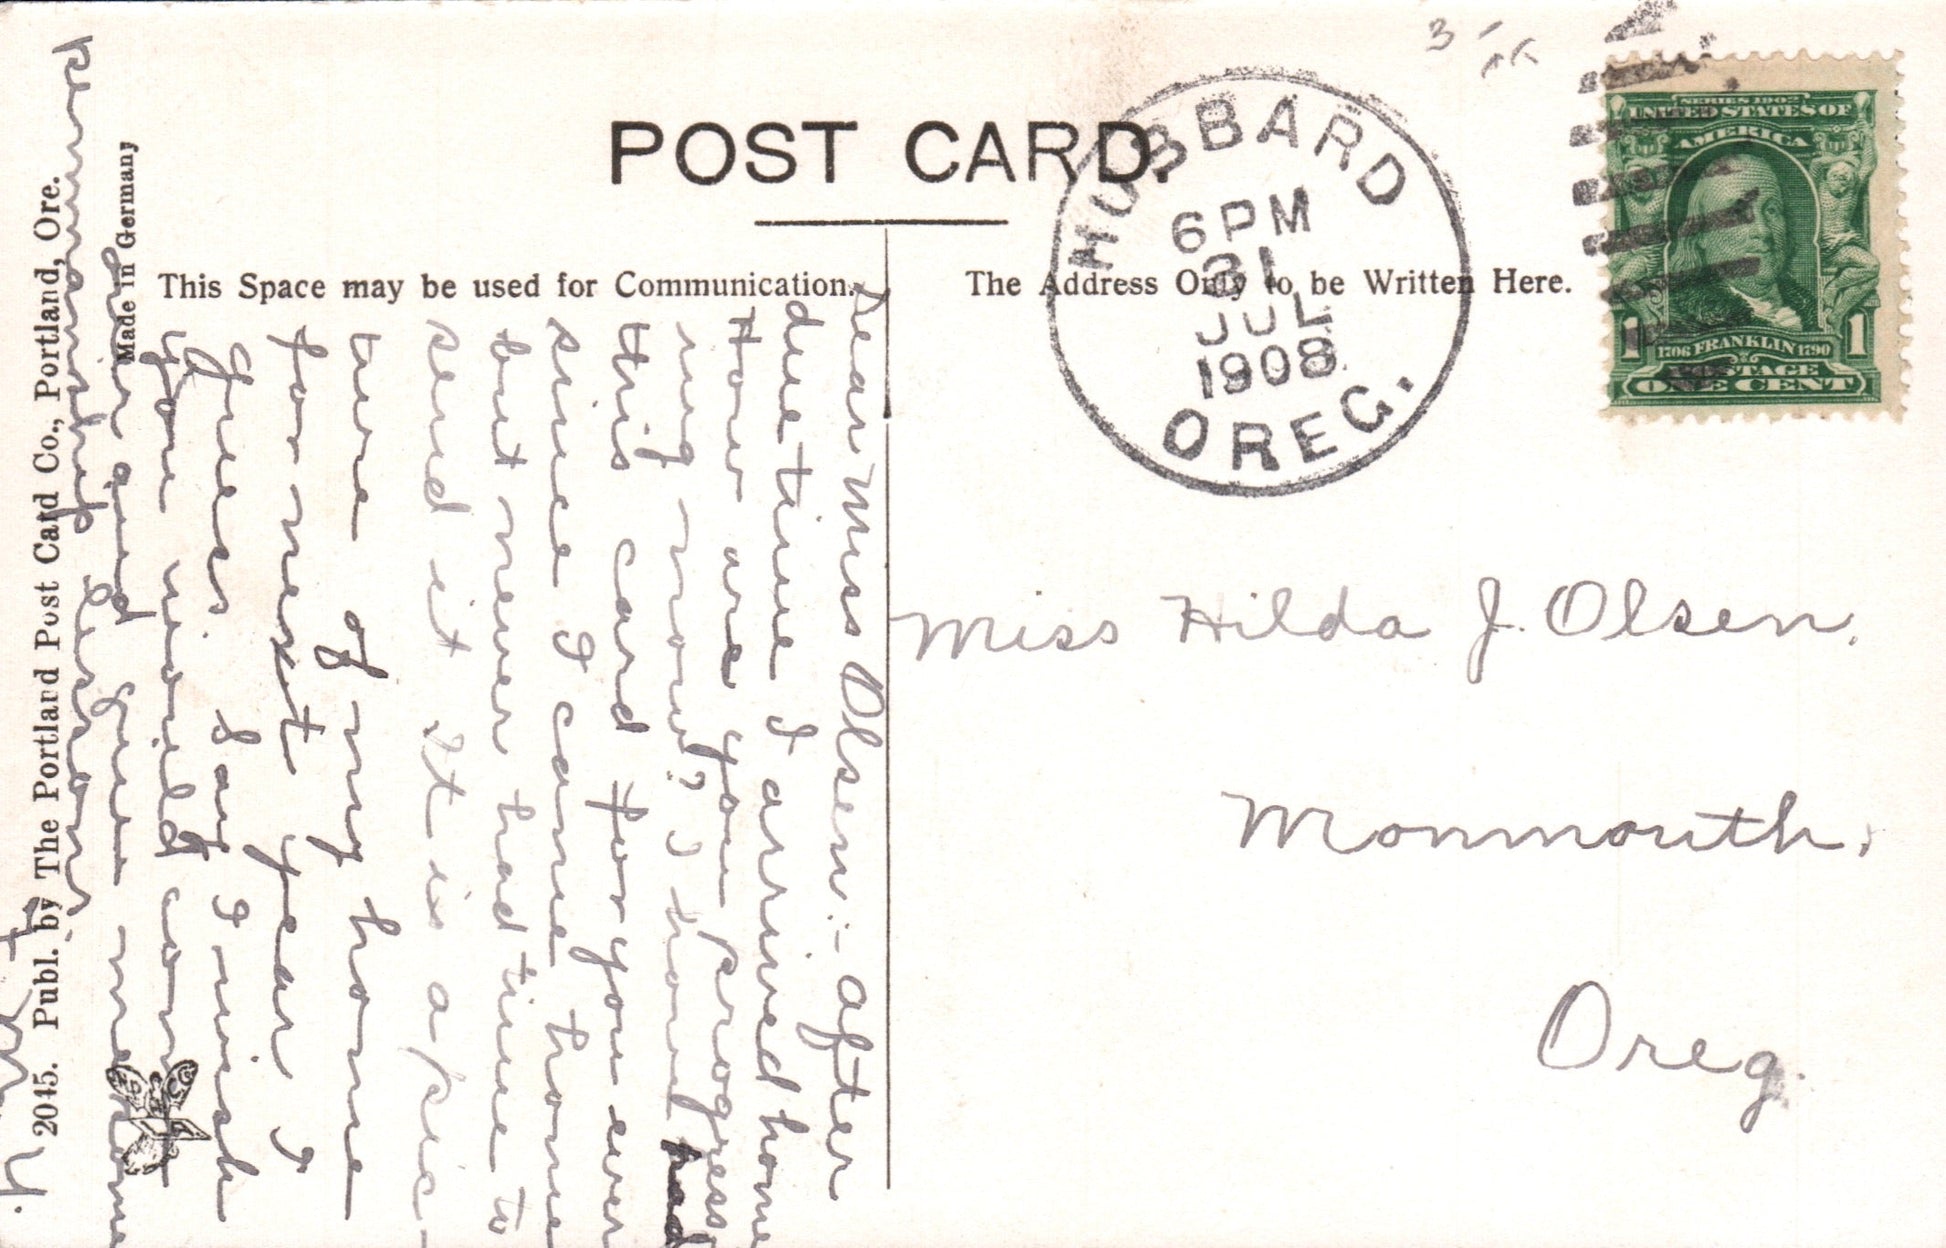 POST CARD.
This Space may be used for Communication.
The Address Only to be Written Here.
HUBBARD
6 PM
31
JUL
1908
OREG.
SERIES 1902
UNITED STATES OF
AMERICA
1706 FRANKLIN 1790
POSTAGE
1 ONE CENT 1
Miss Hilda J. Olsen,
Monmouth,
Oreg.
Dear Miss Olsen:- after
due time I arrived home
How are you progress
ing now? I have had
this card for you ever
since I came home
but never had time to
send it It is a pic-
ture of my home
for next year I
guess. Say I wish
you would come
over and give me some
penmanship lessons.
Made in Germany
2045. Publ. by The Portland Post Card Co., Portland, Ore.